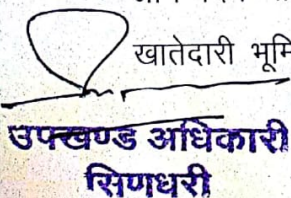 खातेदारी भूमि
उपखण्ड अधिकारी
सिणधरी